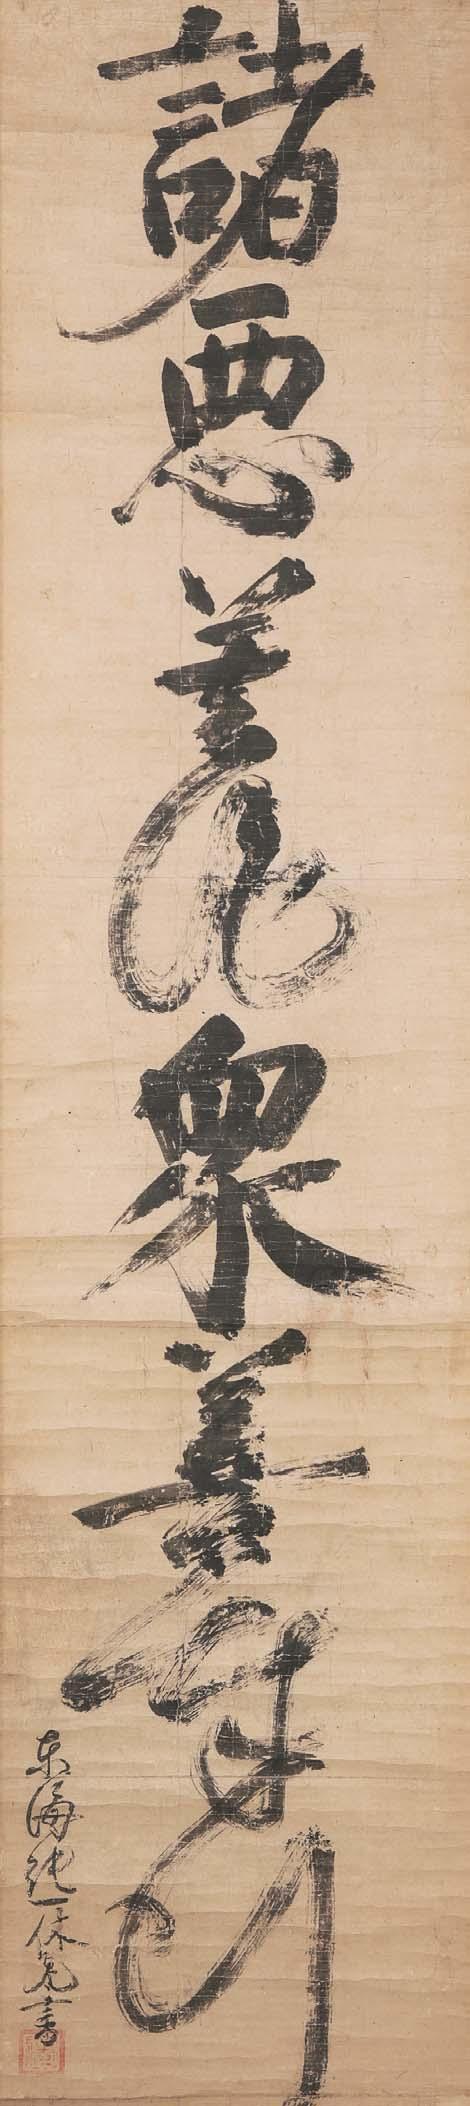 諸悪莫作衆善奉行
東海純一休老書